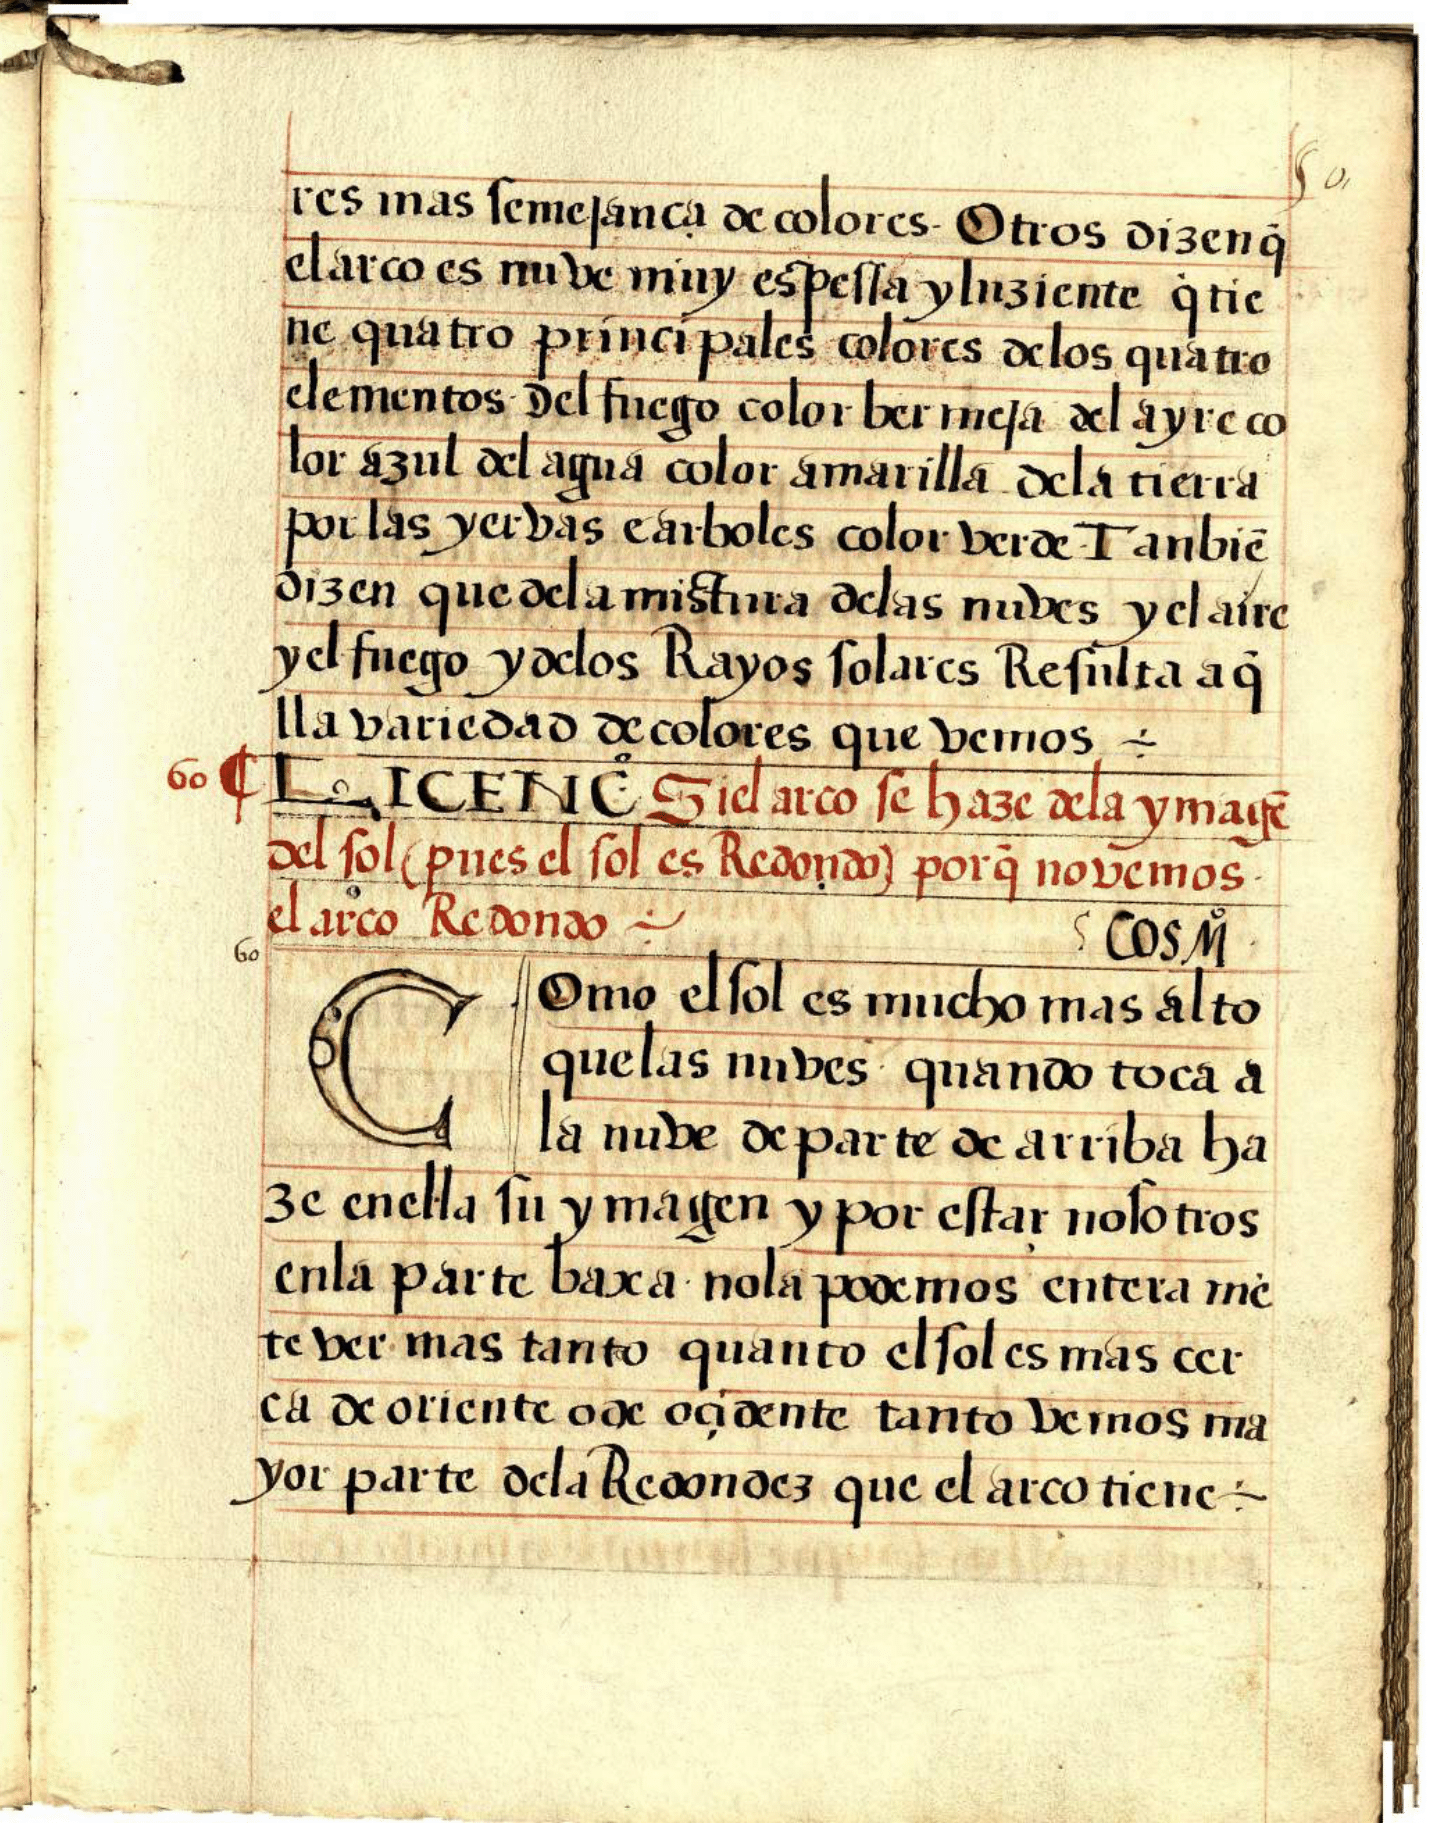 50
res mas semejança de colores. Otros dizen q̃
el arco es nuve muy espessa y luziente q̃ tie
ne quatro principales colores de los quatro
elementos. Del fuego color bermeja del ayre co
lor azul del agua color amarilla de la tierra
por las yervas e arboles color verde. Tanbiē
dizen que de la mistura de las nuves y el aire
y el fuego y de los Rayos solares Resulta aq̃
lla variedad de colores que vemos ÷
60 ¶ LICENCº Si el arco se haze de la ymagē
del sol (pues el sol es Redondo) porq̃ no vemos
el arco Redondo ÷ COSMº
60
Como el sol es mucho mas alto
que las nuves quando toca a
la nuve de parte de arriba ha
ze en ella su ymagen y por estar nosotros
en la parte baxa no la podemos entera mē
te ver mas tanto quanto el sol es mas cer
ca de oriente o de oçidente tanto vemos ma
yor parte de la Redondez que el arco tiene ÷